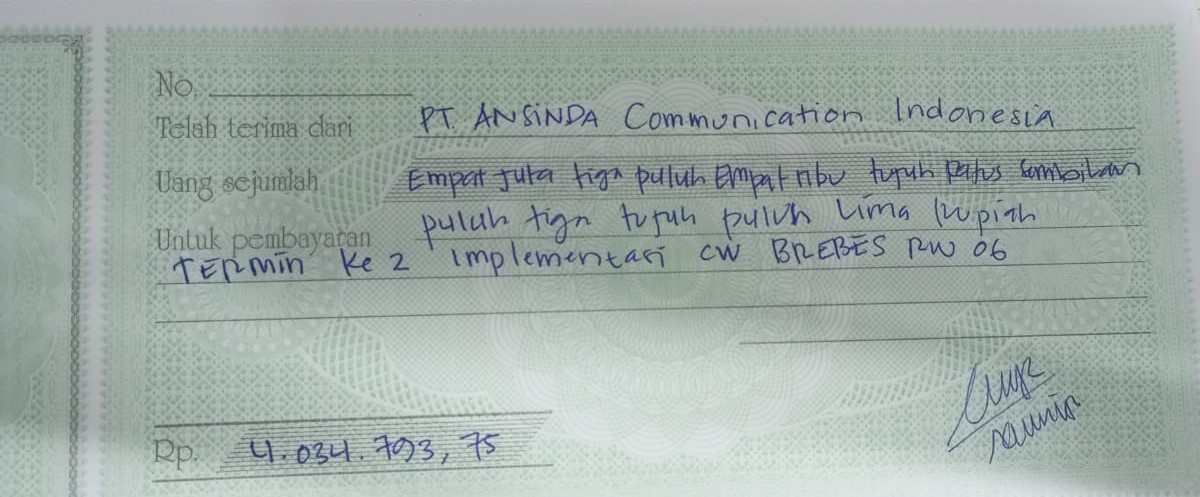 No.
Telah terima dari PT. ANSINDA Communication Indonesia
Uang sejumlah Empat Juta tiga puluh Empat ribu tujuh ratus sembilan
puluh tiga tujuh puluh Lima rupiah
Untuk pembayaran
TERMIN Ke 2 Implementasi CW BREBES RW 06
Rp. 4.034.793,75